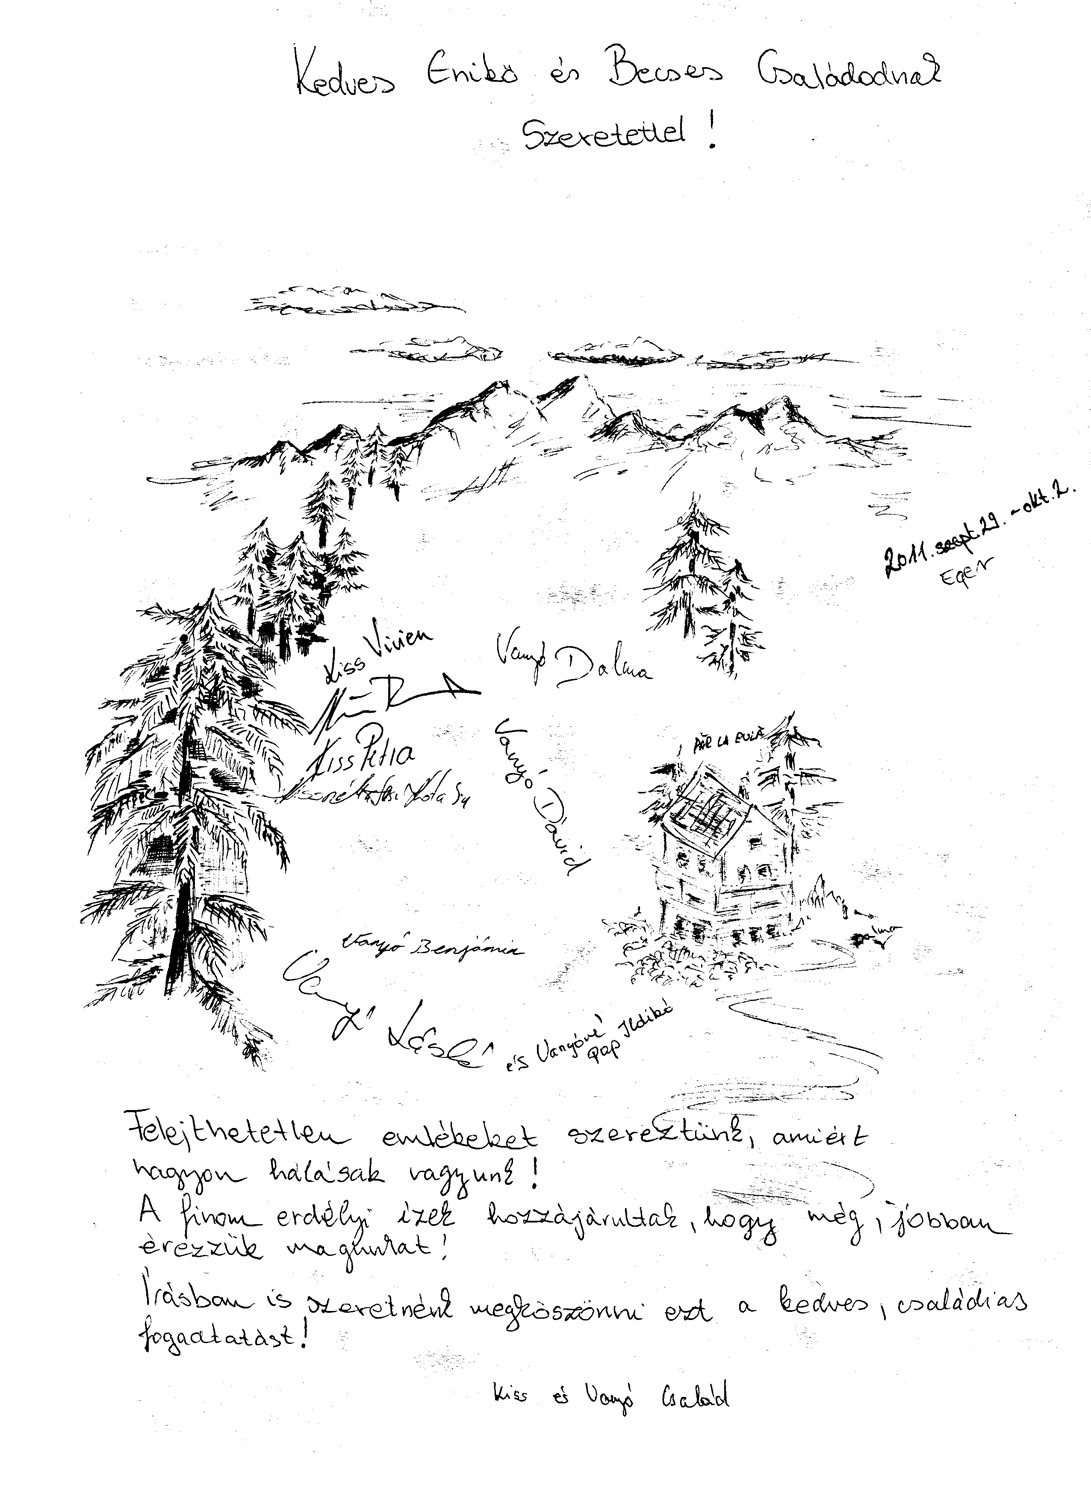 Kedves Enikő és Becses Családodnak
Szeretettel!
2011. szept. 29. - okt. 2.
Eger
Kiss Vivien
Vanyó Dalma
Kiss Petra
Vanyó Dávid
PÁR LA
Dalma
Vanyó Benjámin
Vanyó László és Vanyóné
Pap Ildikó
Felejthetetlen emlékeket szereztünk, amiért
nagyon hálásak vagyunk!
A finom erdélyi ízek hozzájárultak, hogy még, jobban
érezzük magunkat!
Írásban is szeretnénk megköszönni ezt a kedves, családias
fogadtatást!
Kiss és Vanyó Család